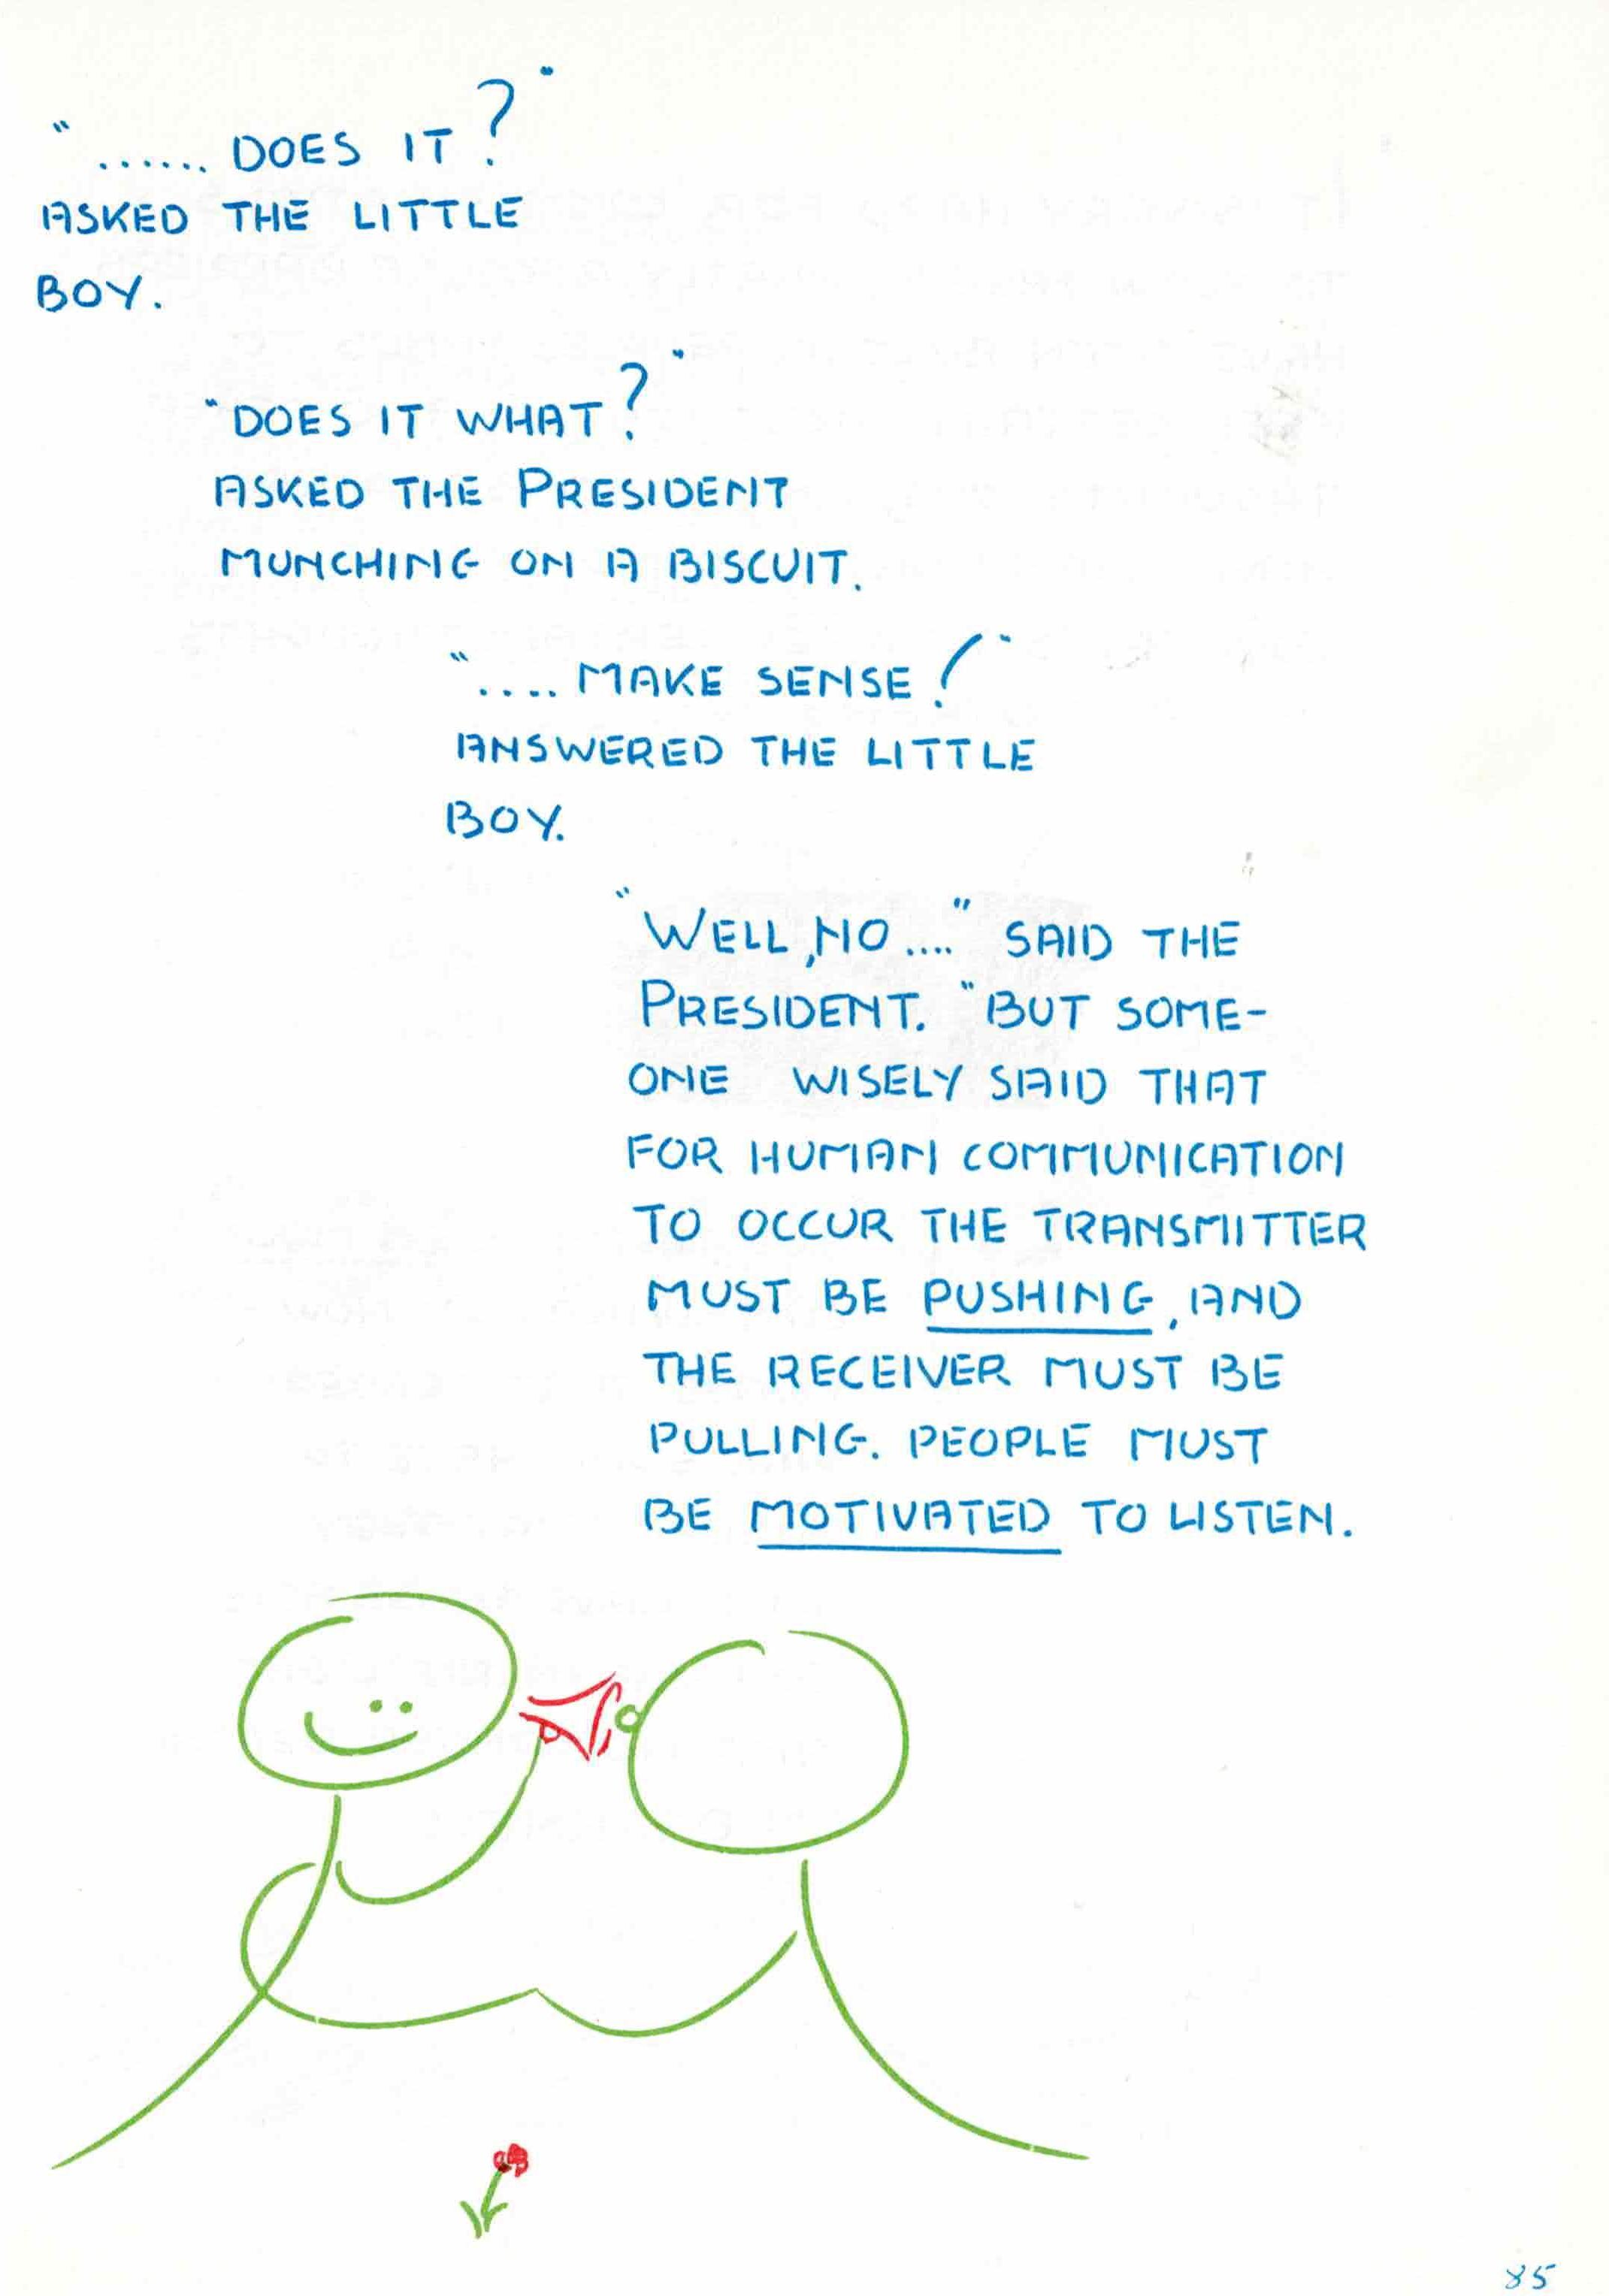 "...... DOES IT?"
ASKED THE LITTLE
BOY.
"DOES IT WHAT?"
ASKED THE PRESIDENT
MUNCHING ON A BISCUIT.
".... MAKE SENSE!"
ANSWERED THE LITTLE
BOY.
"WELL, NO ...." SAID THE
PRESIDENT. "BUT SOME-
ONE WISELY SAID THAT
FOR HUMAN COMMUNICATION
TO OCCUR THE TRANSMITTER
MUST BE PUSHING, AND
THE RECEIVER MUST BE
PULLING. PEOPLE MUST
BE MOTIVATED TO LISTEN.
85